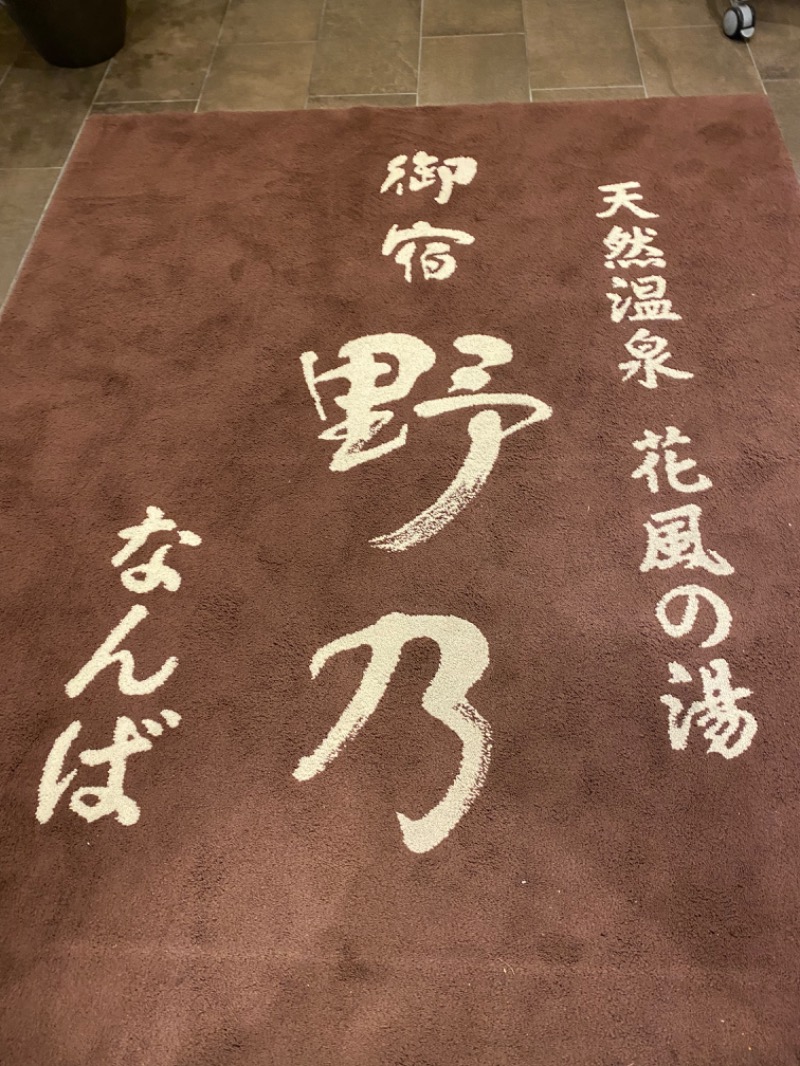 天然温泉 花風の湯
御宿
野乃
なんば